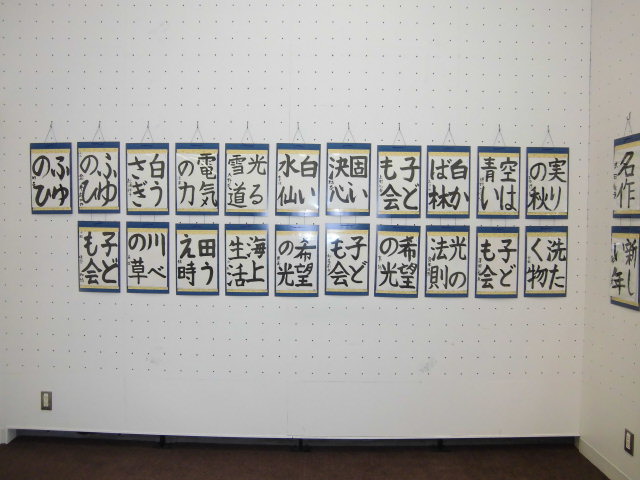 名作
実り
の秋
空は
青い
白か
ば林
子ど
も会
固い
決心
白い
水仙
光る
雪道
電気
の力
白う
さぎ
ふゆ
のひ
ふゆ
のひ
新し
洗た
く物
子ど
も会
光の
法則
希望
の光
子ど
も会
希望
の光
海上
生活
田う
え時
川べ
の草
子ど
も会